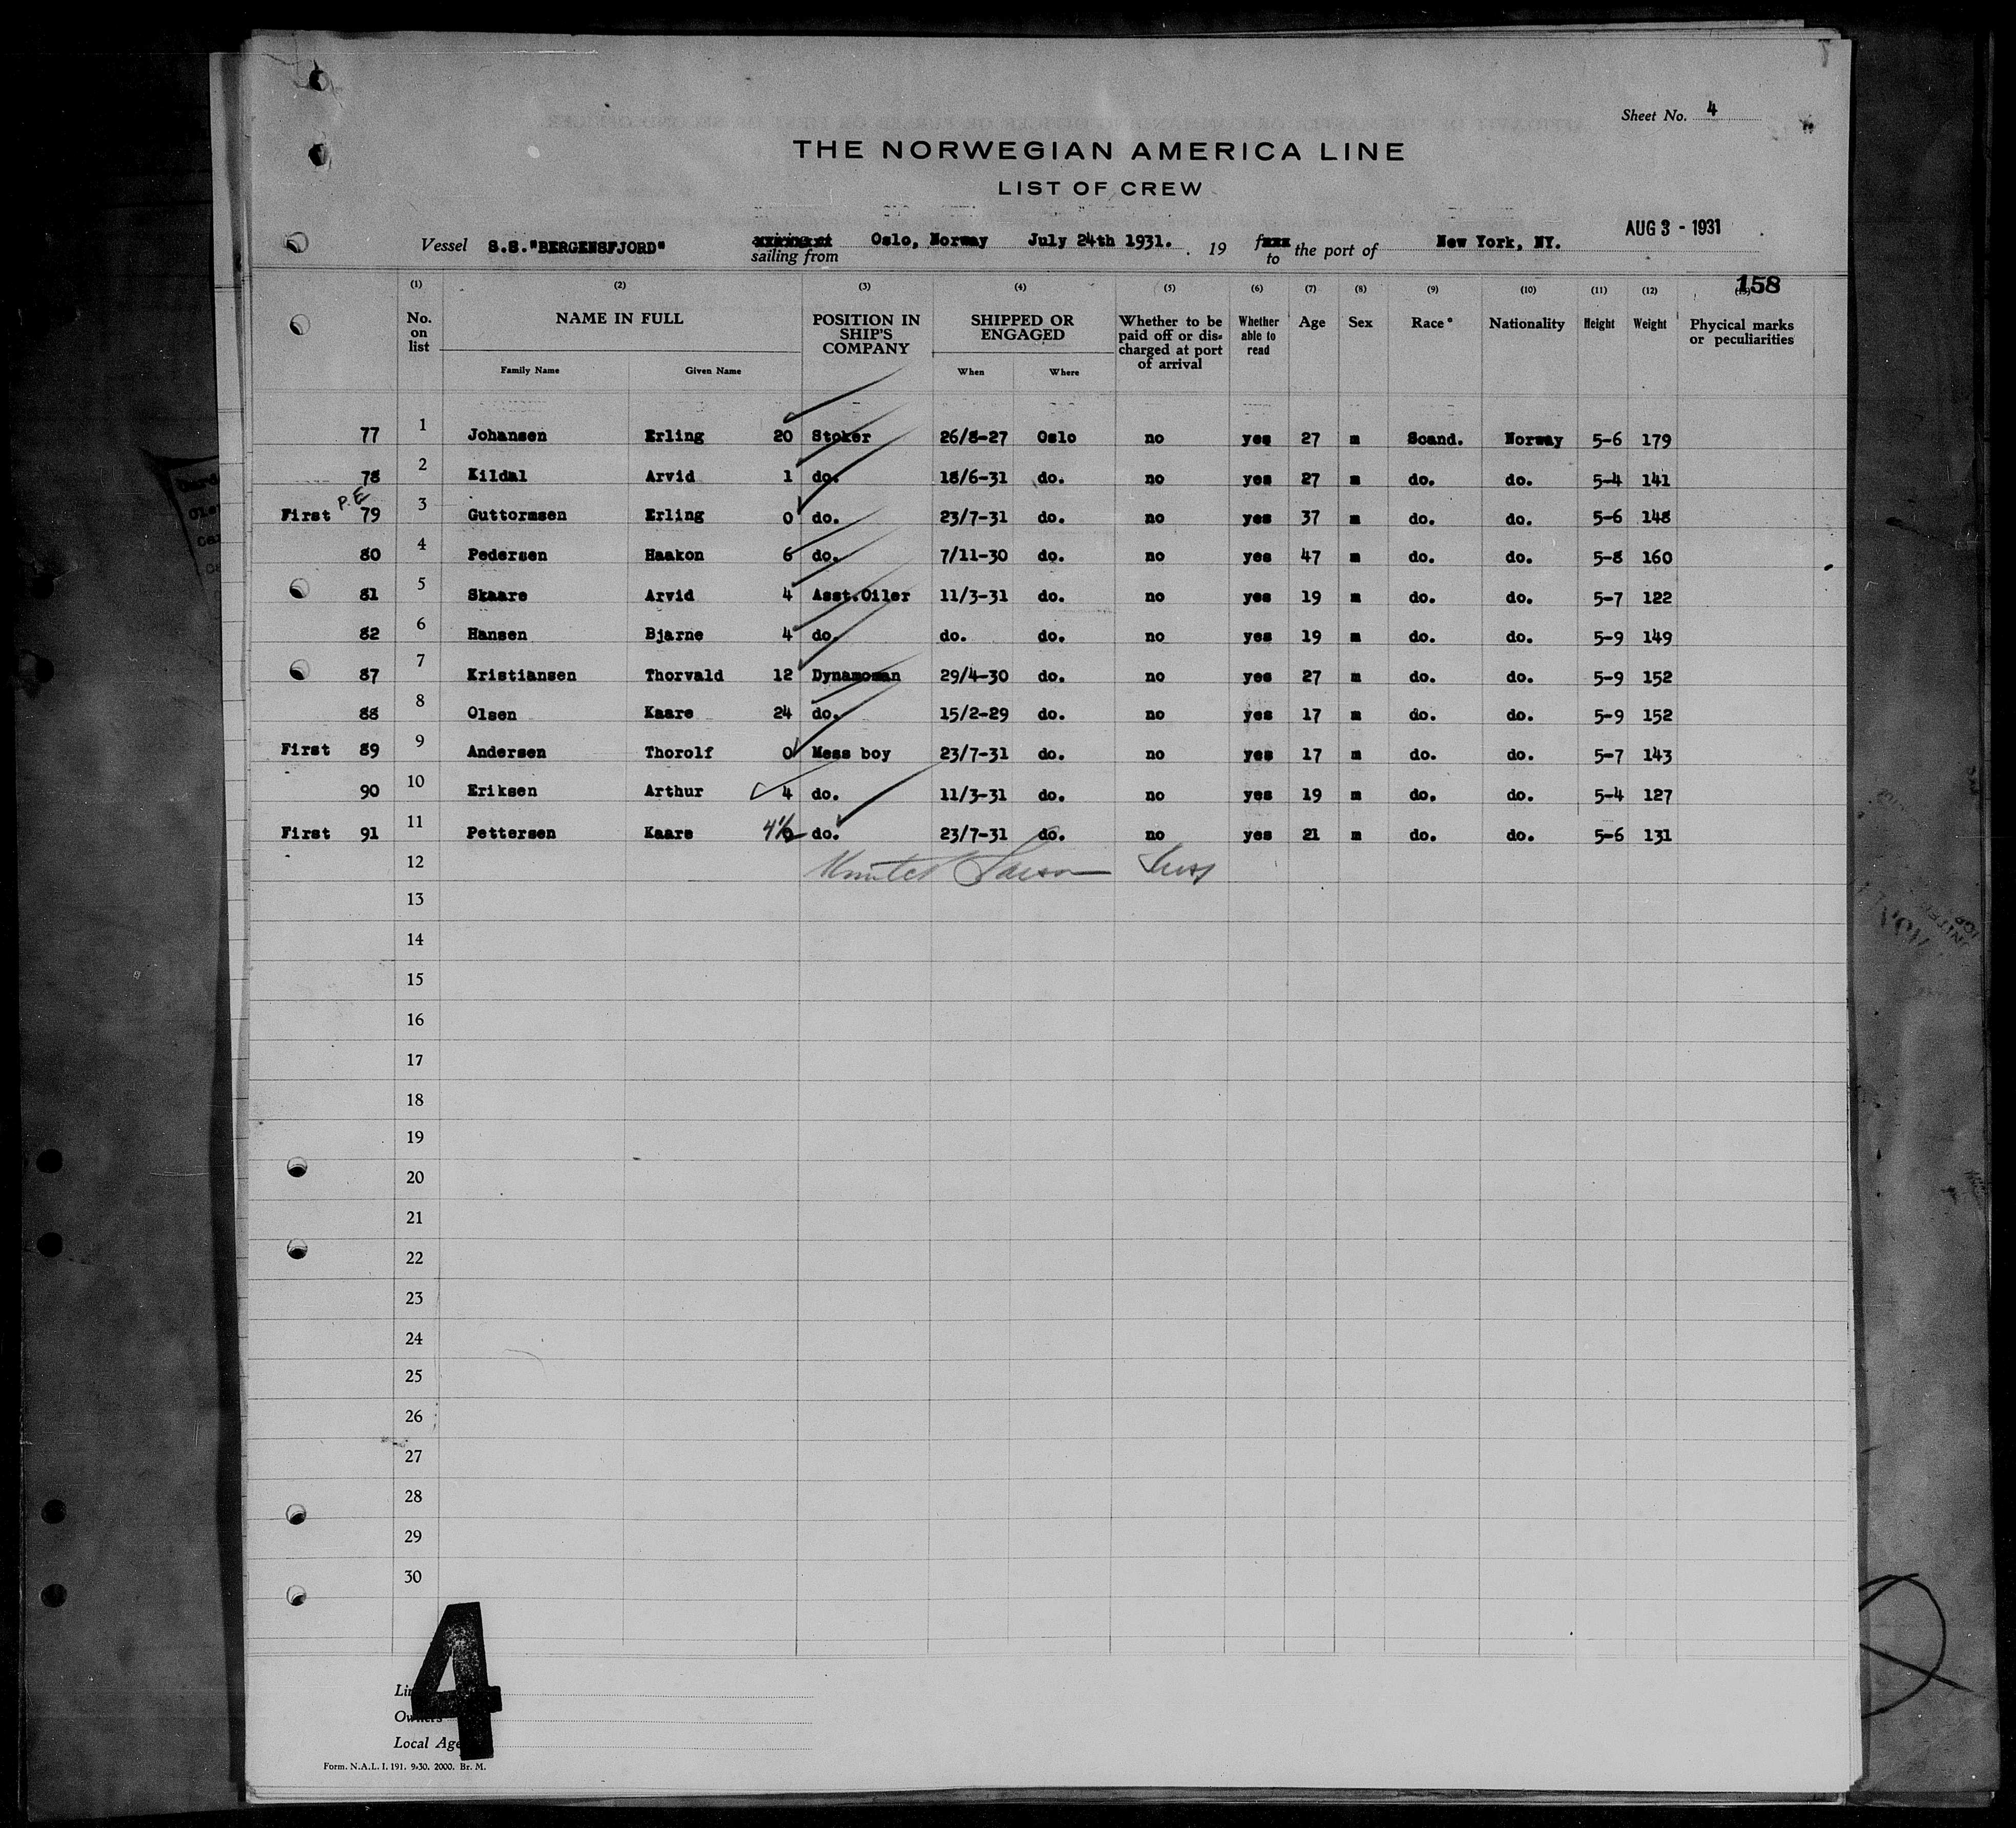 Sheet No. 4
THE NORWEGIAN AMERICA LINE
LIST OF CREW
AUG 3 - 1931
Vessel S.S."BERGENSFJORD" sailing from Oslo, Norway July 24th 1931. 19 to the port of New York, NY.
158
(1) (2) (3) (4) (5) (6) (7) (8) (9) (10) (11) (12)
No. on list NAME IN FULL POSITION IN SHIP'S COMPANY SHIPPED OR ENGAGED Whether to be paid off or discharged at port of arrival Whether able to read Age Sex Race* Nationality Height Weight Phycical marks or peculiarities
Family Name Given Name When Where
77 1 Johansen Erling 20 Stoker 26/8-27 Oslo no yes 27 m Scand. Norway 5-6 179
78 2 Kildal Arvid 1 do. 18/6-31 do. no yes 27 m do. do. 5-4 141
First P.E 79 3 Guttormsen Erling 0 do. 23/7-31 do. no yes 37 m do. do. 5-6 148
80 4 Pedersen Haakon 6 do. 7/11-30 do. no yes 47 m do. do. 5-8 160
81 5 Skaare Arvid 4 Asst.Oiler 11/3-31 do. no yes 19 m do. do. 5-7 122
82 6 Hansen Bjarne 4 do. do. do. no yes 19 m do. do. 5-9 149
87 7 Kristiansen Thorvald 12 Dynamoman 29/4-30 do. no yes 27 m do. do. 5-9 152
88 8 Olsen Kaare 24 do. 15/2-29 do. no yes 17 m do. do. 5-9 152
First 89 9 Andersen Thorolf 0 Mess boy 23/7-31 do. no yes 17 m do. do. 5-7 143
90 10 Eriksen Arthur 4 do. 11/3-31 do. no yes 19 m do. do. 5-4 127
First 91 11 Pettersen Kaare 4½ do. 23/7-31 do. no yes 21 m do. do. 5-6 131
12
13
14
15
16
17
18
19
20
21
22
23
24
25
26
27
28
29
30
4
Owners
Local Age
Form. N.A.L. I. 191. 9-30. 2000. Br. M.